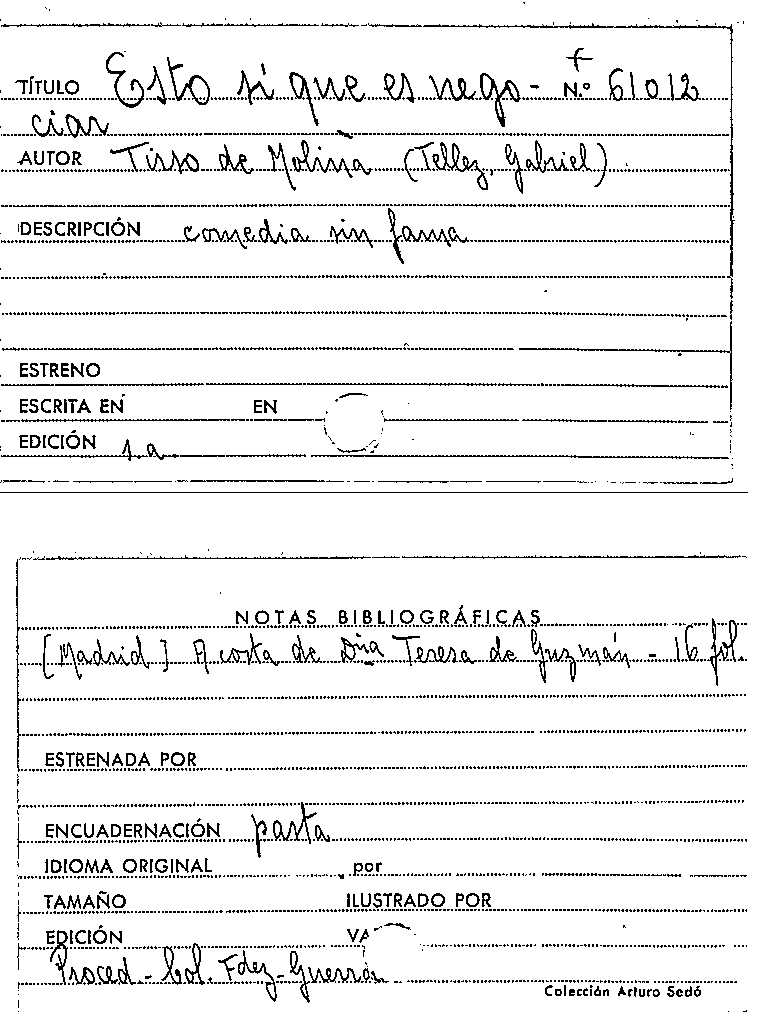 TÍTULO Esto si que es nego- N.º 61012
ciar
AUTOR Tirso de Molina (Tellez, Gabriel)
DESCRIPCIÓN comedia sin fama
ESTRENO
ESCRITA EN EN
EDICIÓN s.a.
NOTAS BIBLIOGRÁFICAS
[Madrid] A costa de Dña Teresa de Guzmán - 16 fol.
ESTRENADA POR
ENCUADERNACIÓN pasta
IDIOMA ORIGINAL por
TAMAÑO ILUSTRADO POR
EDICIÓN VA
Proced - Col. Fdez-Guerra
Colección Arturo Sedó